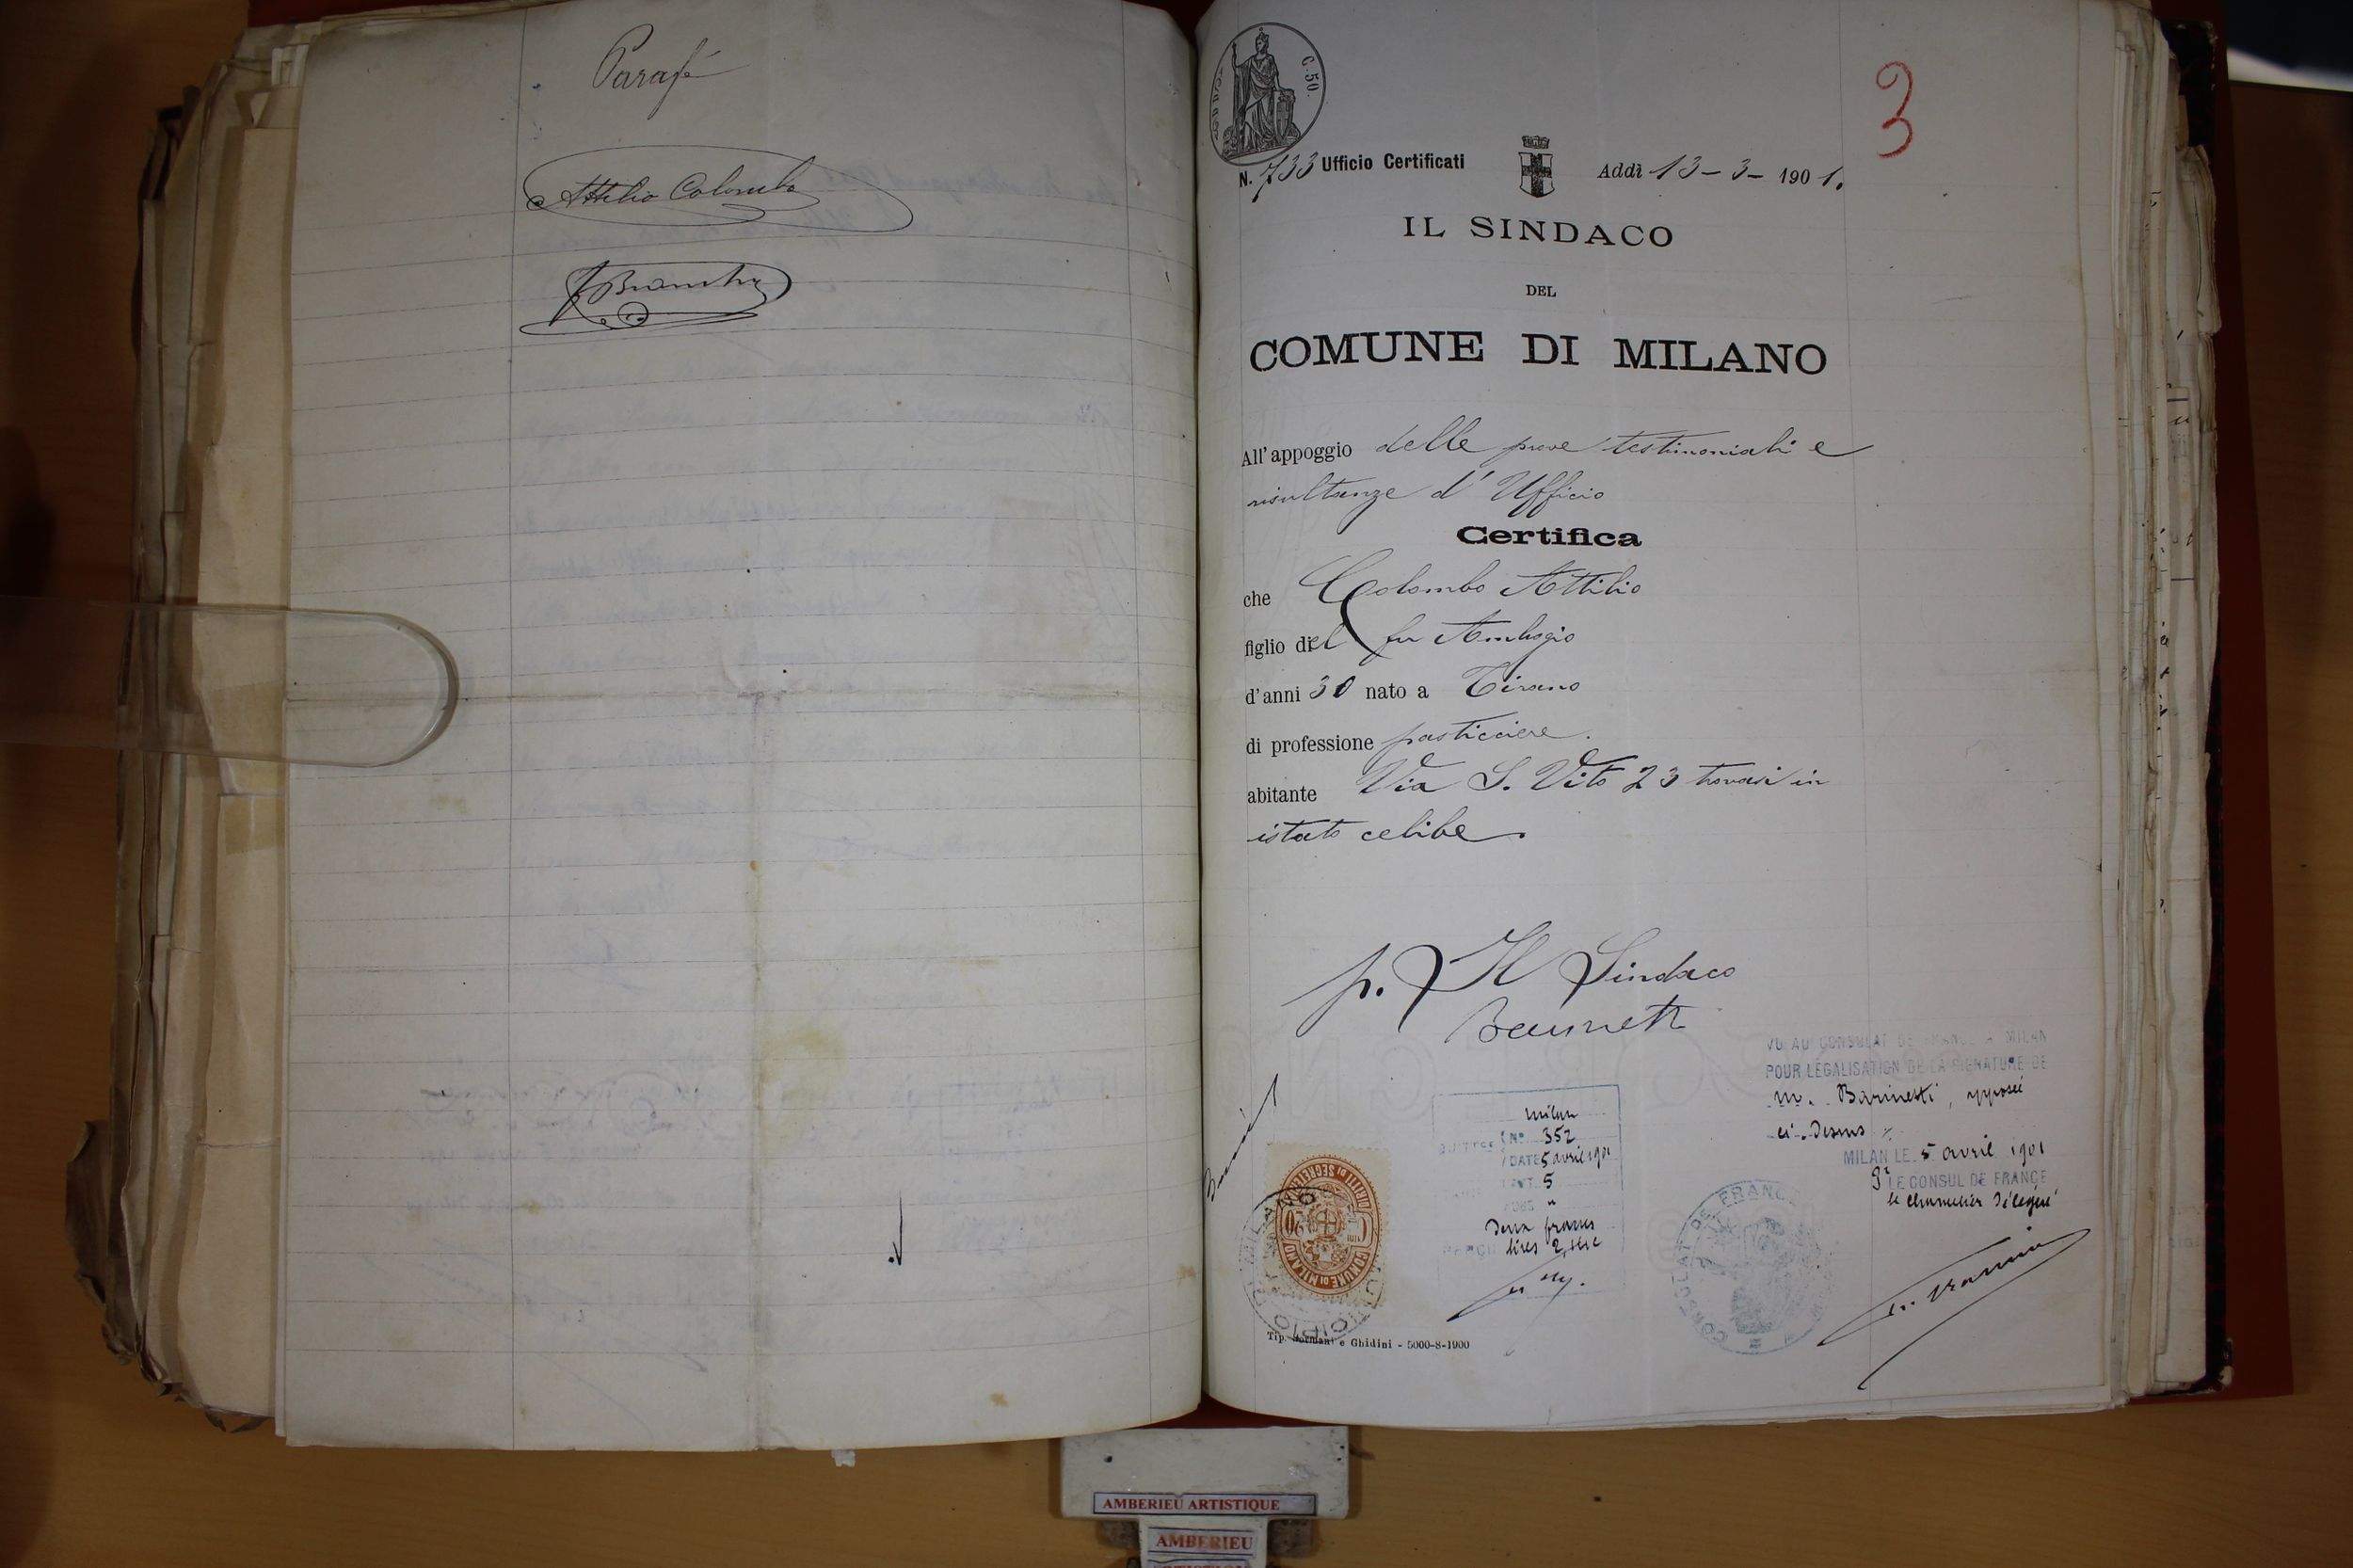 Parafé
Attilio Colombo
C. 50.
3
N. 733 Ufficio Certificati
Addì 13-3-1901.
IL SINDACO
DEL
COMUNE DI MILANO
All'appoggio delle prove testimoniali e
risultanze d'Ufficio
Certifica
che Colombo Attilio
figlio del fu Ambrogio
d'anni 30 nato a Tirano
di professione pasticciere.
abitante Via S. Vito 23 trovasi in
istato celibe.
p. Il Sindaco
VU AU CONSULAT DE FRANCE A MILAN
POUR LÉGALISATION DE LA SIGNATURE DE
M. Barinetti, apposée
ci-dessus
MILAN LE 5 avril 1901
Pr LE CONSUL DE FRANCE
le chancelier délégué
Milan
N° 352
DATE 5 avril 1901
ART. 5
Deux francs
lires 2,
COMUNE DI MILANO
DIRITTI DI SEGRETERIA
20
CONSULAT DE FRANCE
Tip. Sormani e Ghidini - 5000-8-1900
AMBERIEU ARTISTIQUE
AMBERIEU